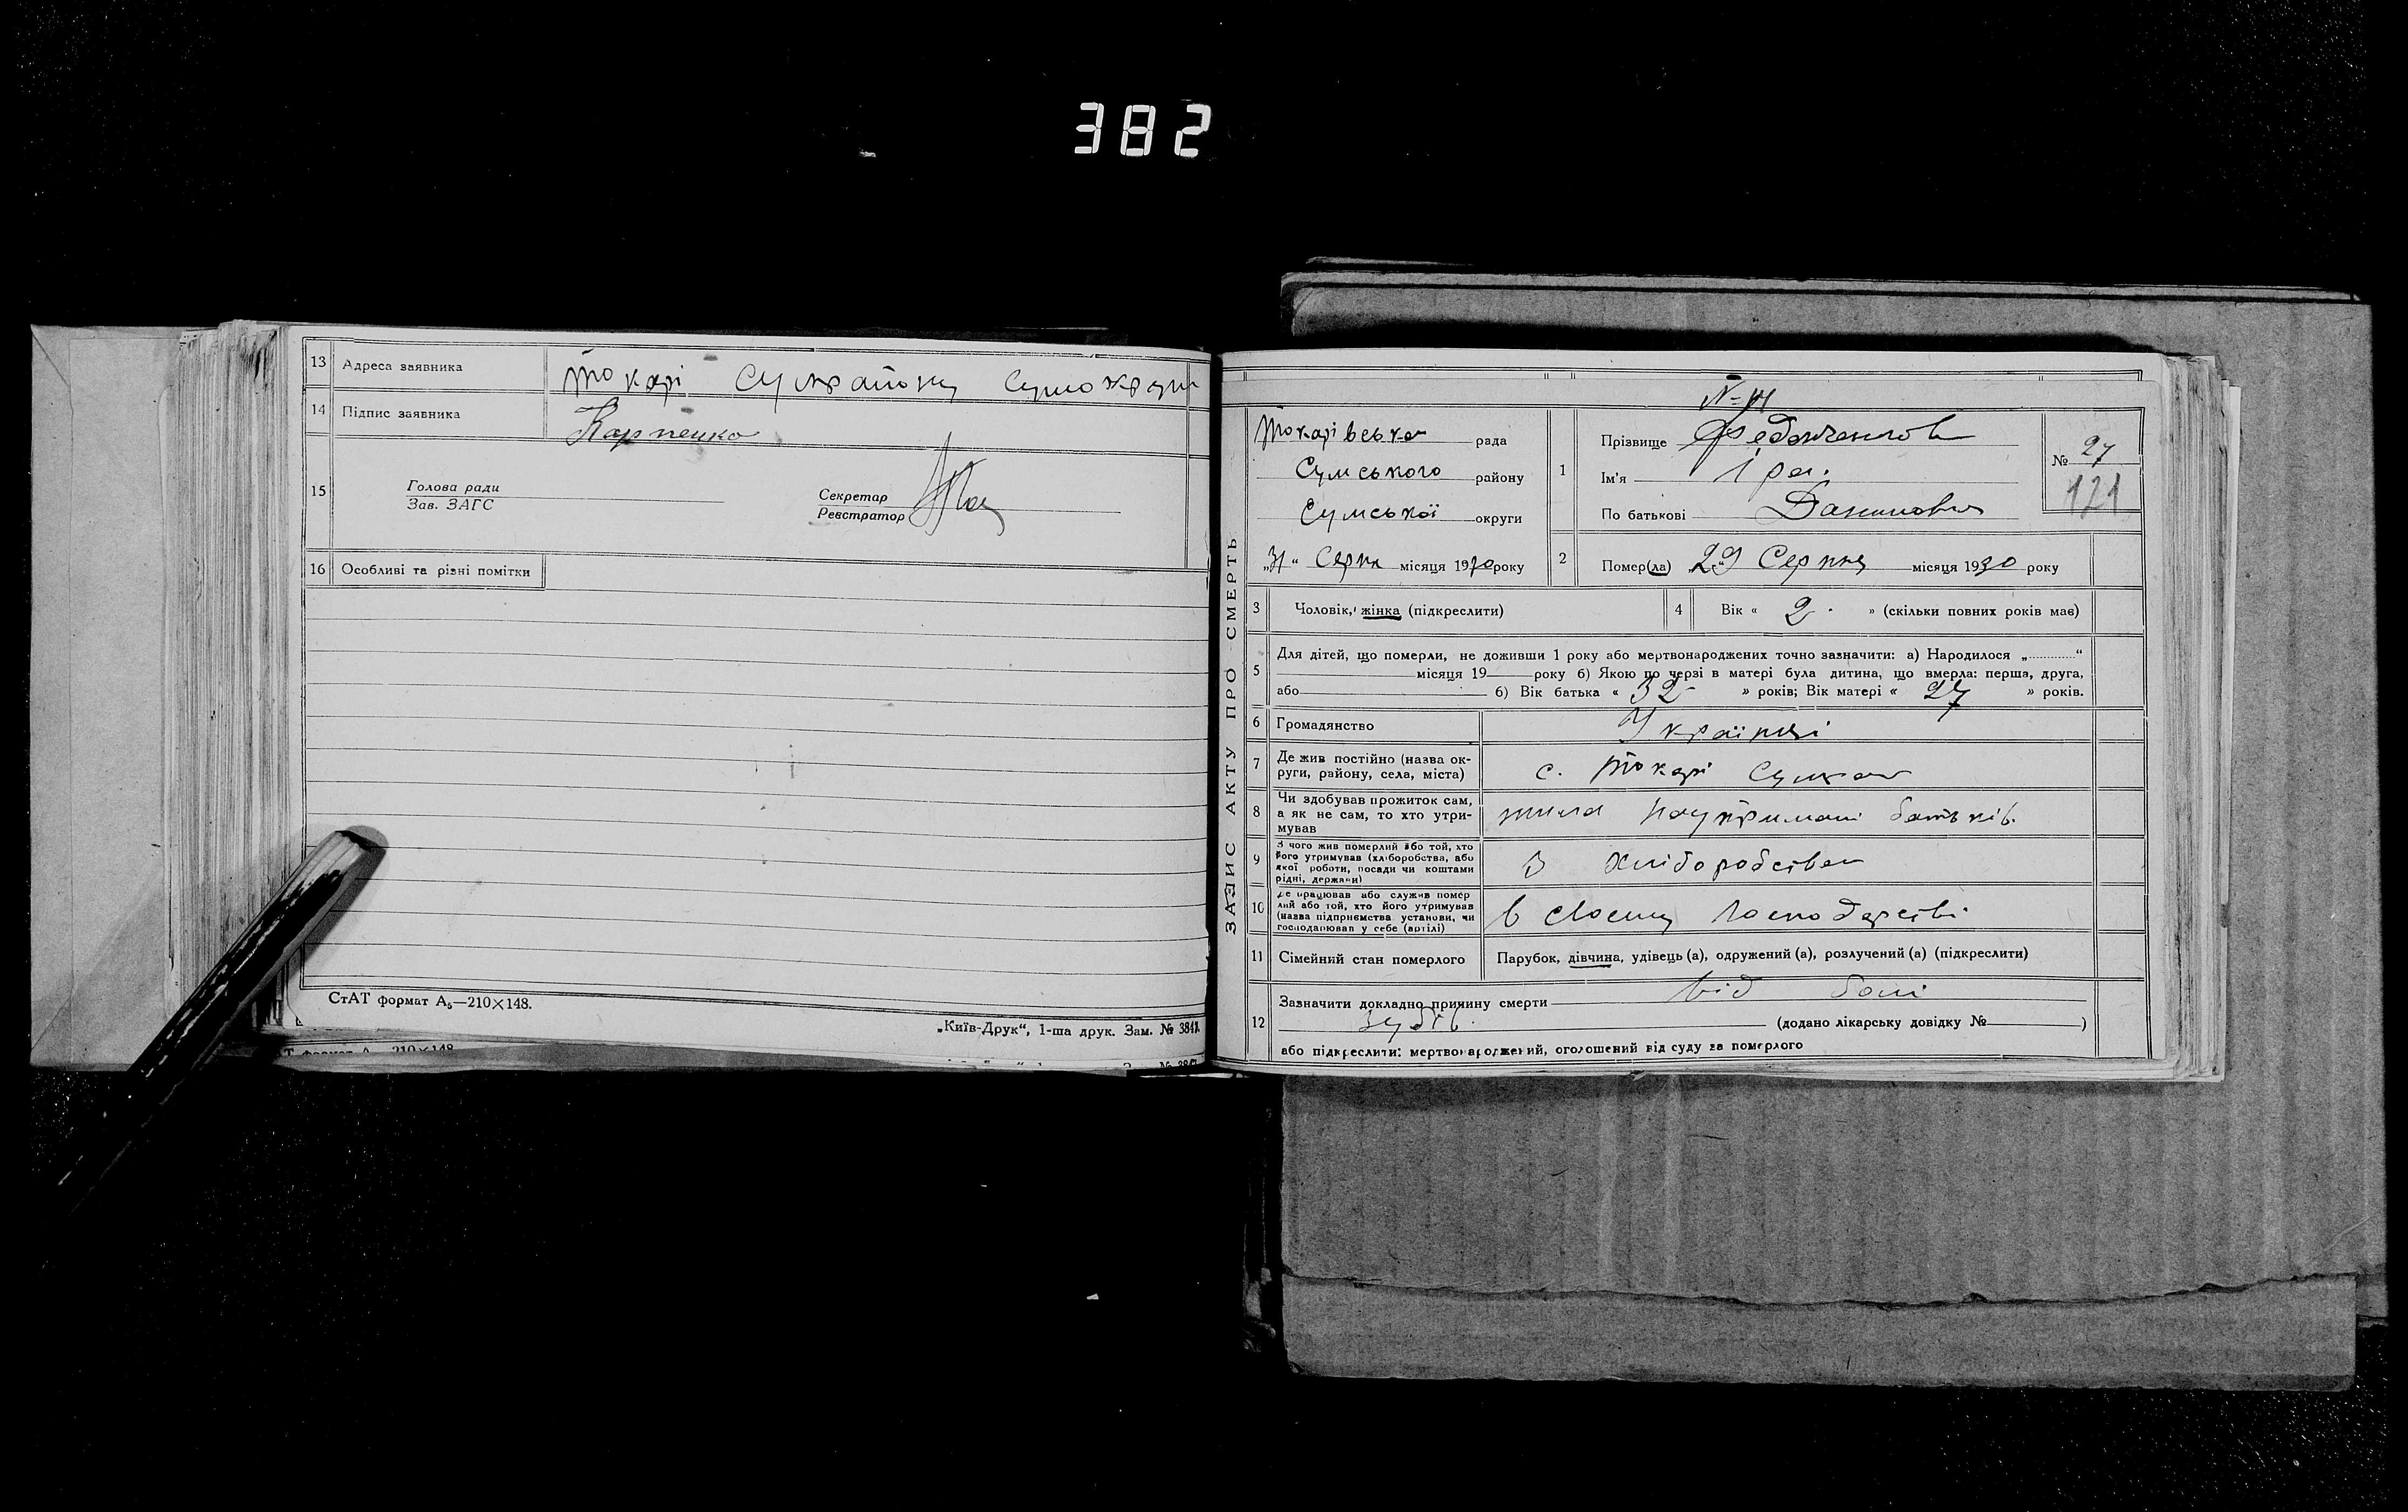 382
13 Адреса заявника Токарі Сумрайону Сумокруги
14 Підпис заявника Карпенко
15 Голова ради
Зав. ЗАГС
Секретар
Реєстратор
16 Особливі та різні помітки
СтАТ формат А₅—210×148.
„Київ-Друк“, 1-ша друк. Зам. № 3841.
ЗАПИС АКТУ ПРО СМЕРТЬ
Токарівська рада
Сумського району
Сумської округи
„31“ Серпн місяця 1930 року
1 Прізвище
Ім'я Іра.
По батькові Даниловна
№ 27
121
2 Помер(ла) „29 Серпня місяця 1930 року
3 Чоловік, жінка (підкреслити)
4 Вік « 2. » (скільки повних років має)
5 Для дітей, що померли, не доживши 1 року або мертвонароджених точно зазначити: а) Народилося „ “
місяця 19 року б) Якою по черзі в матері була дитина, що вмерла: перша, друга,
або б) Вік батька « 32 » років; Вік матері « 27 » років.
6 Громадянство Українці
7 Де жив постійно (назва округи, району, села, міста) с. Токарі
8 Чи здобував прожиток сам,
а як не сам, то хто утримував
жила на утримані батьків.
9 З чого жив померлий або той, хто
його утримував (хліборобства, або
якої роботи, посади чи коштами
рідні, держави)
З хліборобства
10 Де працював або служив померлий або той, хто його утримував
(назва підприємства установи, чи
господарював у себе (артілі)
в своєму господарстві
11 Сімейний стан померлого Парубок, дівчина, удівець (а), одружений (а), розлучений (а) (підкреслити)
12 Зазначити докладно причину смерти від болі
зубів. (додано лікарську довідку № )
або підкреслити: мертвонароджений, оголошений від суду за померлого